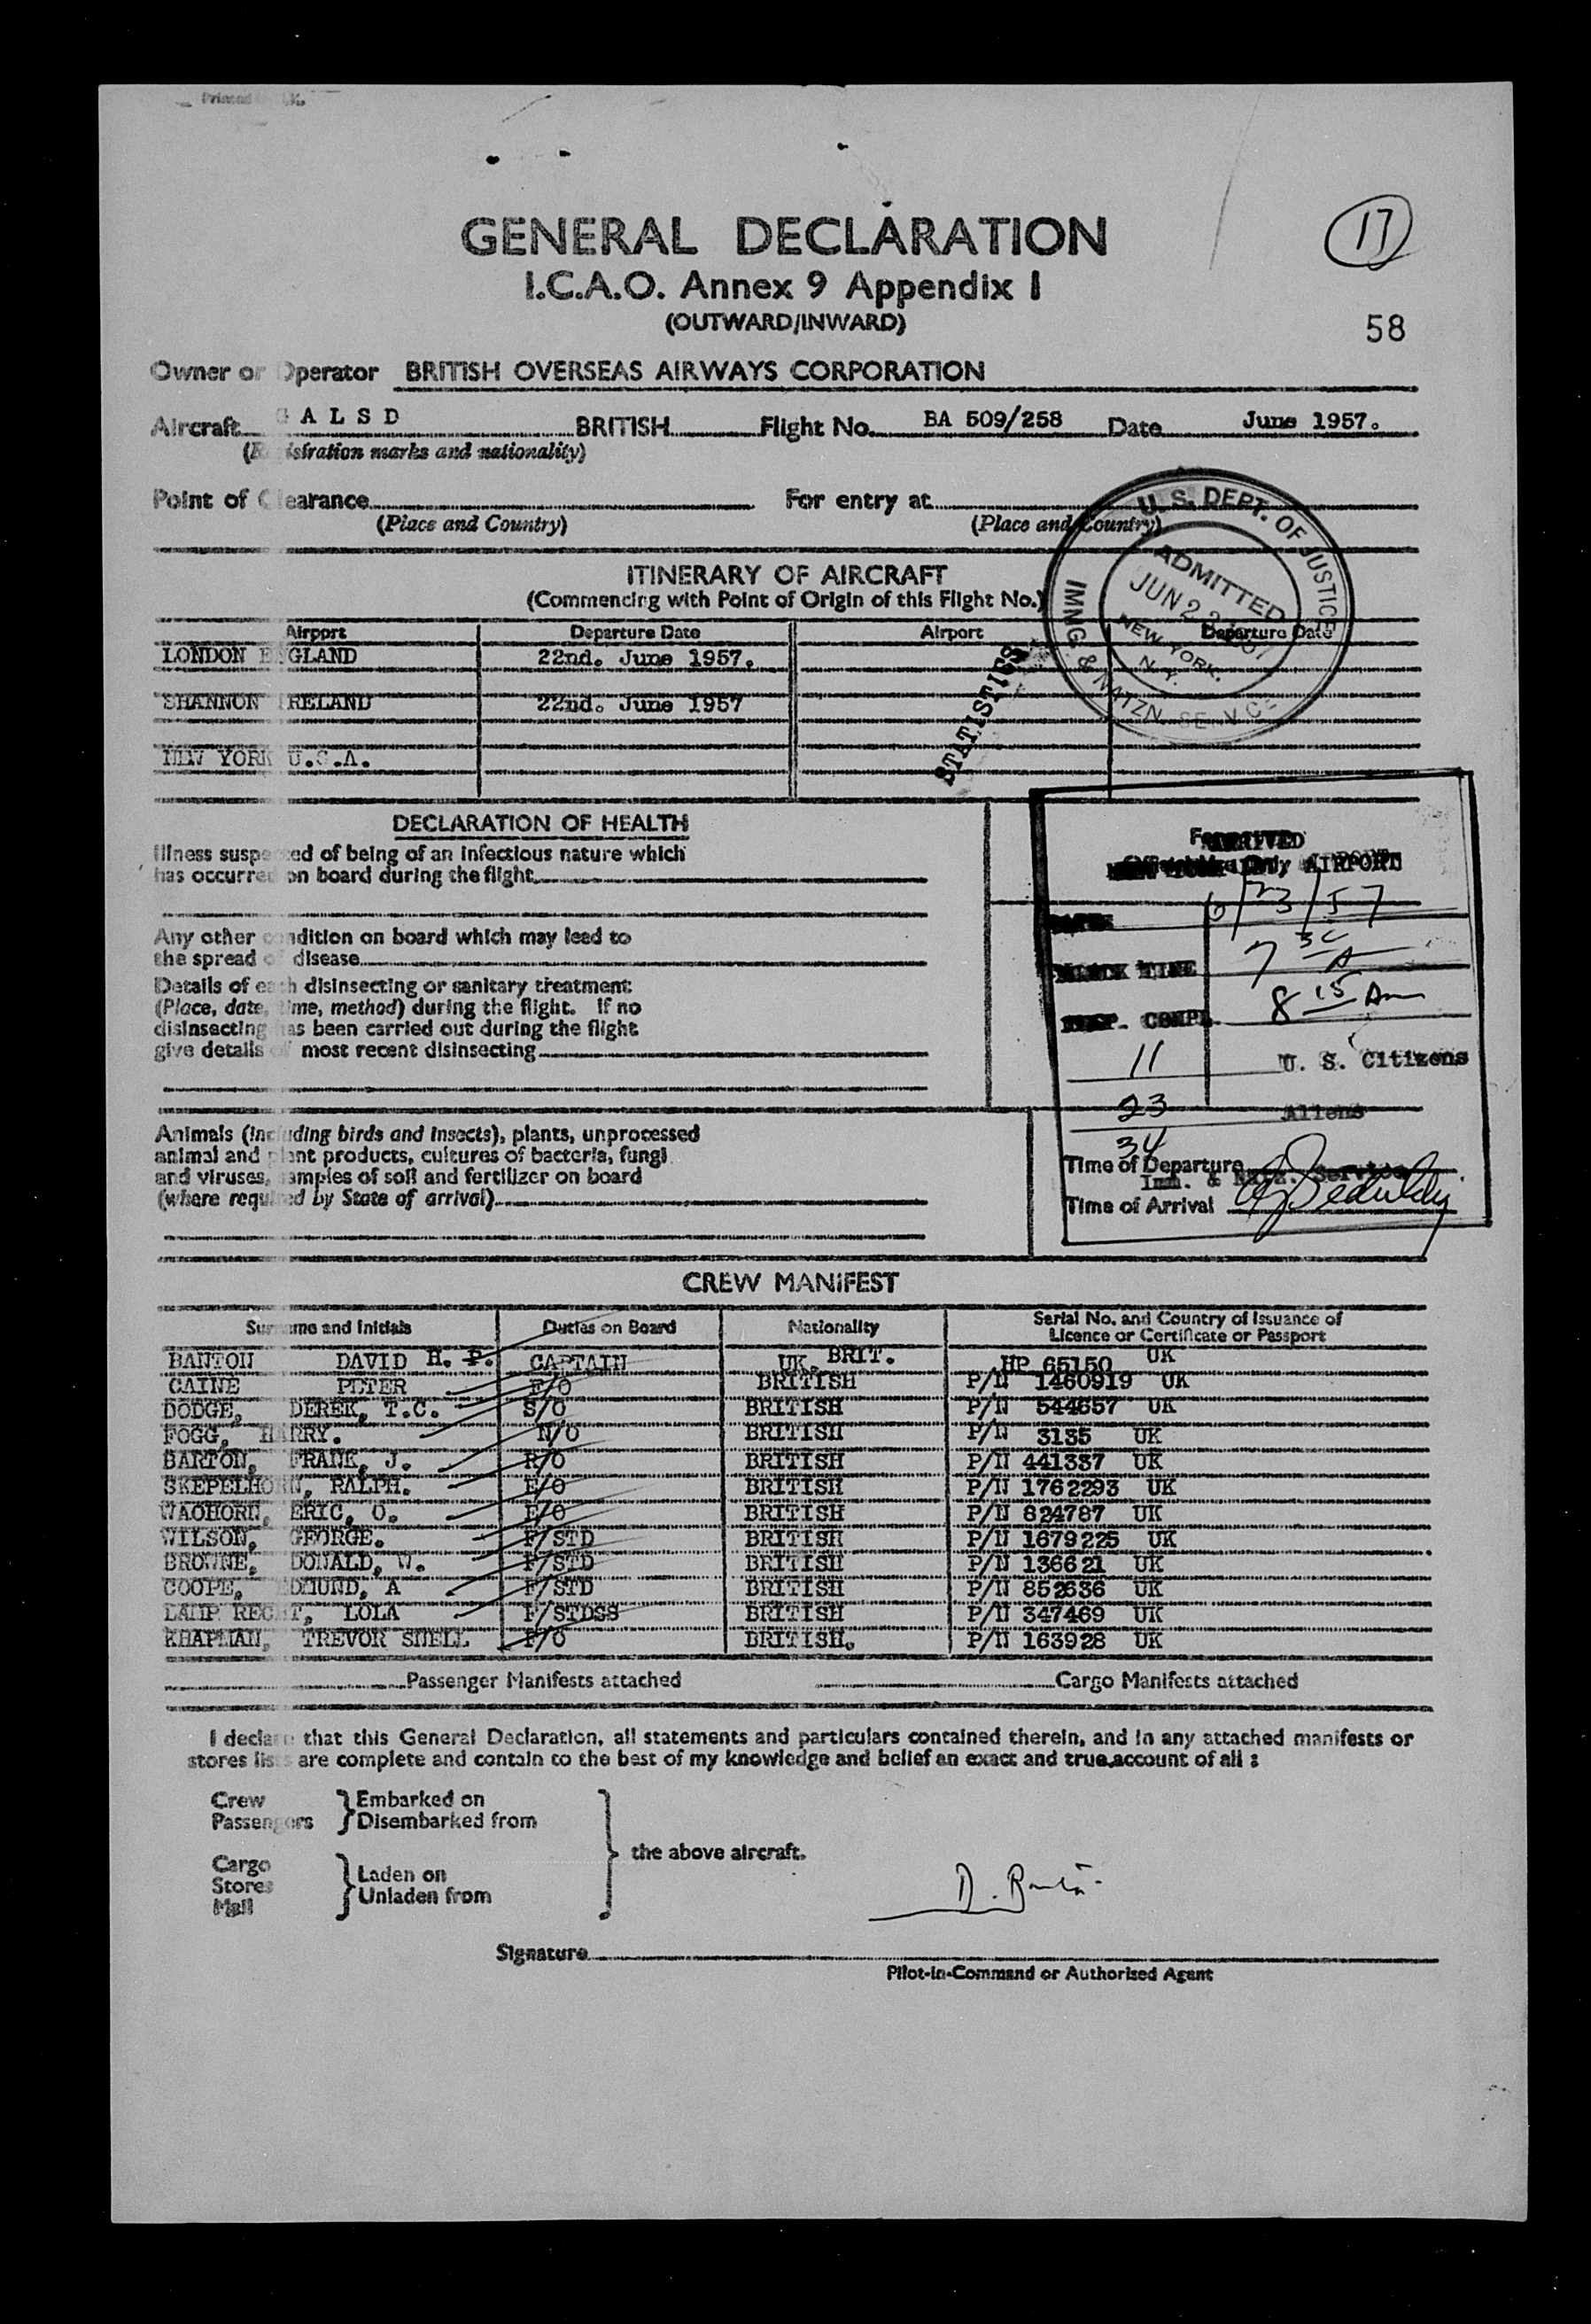 GENERAL DECLARATION
17
I.C.A.O. Annex 9 Appendix I
(OUTWARD/INWARD)
58
Owner or Operator BRITISH OVERSEAS AIRWAYS CORPORATION
Aircraft G A L S D BRITISH Flight No. BA 509/258 Date June 1957.
(Registration marks and nationality)
Point of Clearance For entry at
(Place and Country) (Place and Country)
U. S. DEPT. OF JUSTICE
ADMITTED
JUN 23 1957
NEW YORK.
N. Y.
IMNG. & NATZN. SERVICE
ITINERARY OF AIRCRAFT
(Commencing with Point of Origin of this Flight No.)
Airport Departure Date Airport Departure Date
LONDON ENGLAND 22nd. June 1957.
SHANNON IRELAND 22nd. June 1957
NEW YORK U.S.A.
STATISTICS
DECLARATION OF HEALTH
Illness suspected of being of an infectious nature which
has occurred on board during the flight
Any other condition on board which may lead to
the spread of disease
Details of each disinsecting or sanitary treatment
(Place, date, time, method) during the flight. If no
disinsecting has been carried out during the flight
give details of most recent disinsecting
ARRIVED
AIRPORT
DATE 6/23/57
BLOCK TIME 7 30 A
INSP. COMPL. 8 15 Am
11 U. S. Citizens
23 Aliens
34
Time of Departure
Imm. & Natz. Service
Time of Arrival
Animals (including birds and insects), plants, unprocessed
animal and plant products, cultures of bacteria, fungi
and viruses, samples of soil and fertilizer on board
(where required by State of arrival)
CREW MANIFEST
Surname and Initials Duties on Board Nationality Serial No. and Country of Issuance of
Licence or Certificate or Passport
BANTON DAVID H. P. CAPTAIN UK. BRIT. HP 65150 UK
CAINE PETER F/O BRITISH P/N 1460919 UK
DODGE, DEREK, T.C. S/O BRITISH P/N 544657 UK
FOGG, HARRY. N/O BRITISH P/N 3135 UK
BARTON, FRANK, J. R/O BRITISH P/N 441337 UK
SKEPELHORN, RALPH. E/O BRITISH P/N 1762293 UK
WAOHORN, ERIC, O. E/O BRITISH P/N 824787 UK
WILSON, GEORGE. F/STD BRITISH P/N 1679225 UK
BROWNE, DONALD, W. F/STD BRITISH P/N 136621 UK
COOPE, EDMUND, A F/STD BRITISH P/N 852636 UK
LAMP RECHT, LOLA F/STDSS BRITISH P/N 347469 UK
KHAPMAN, TREVOR SNELL F/O BRITISH. P/N 163928 UK
Passenger Manifests attached Cargo Manifests attached
I declare that this General Declaration, all statements and particulars contained therein, and in any attached manifests or
stores lists are complete and contain to the best of my knowledge and belief an exact and true account of all :
Crew Embarked on
Passengers Disembarked from
the above aircraft.
Cargo
Stores Laden on
Mail Unladen from
D. Banton
Signature
Pilot-in-Command or Authorised Agent